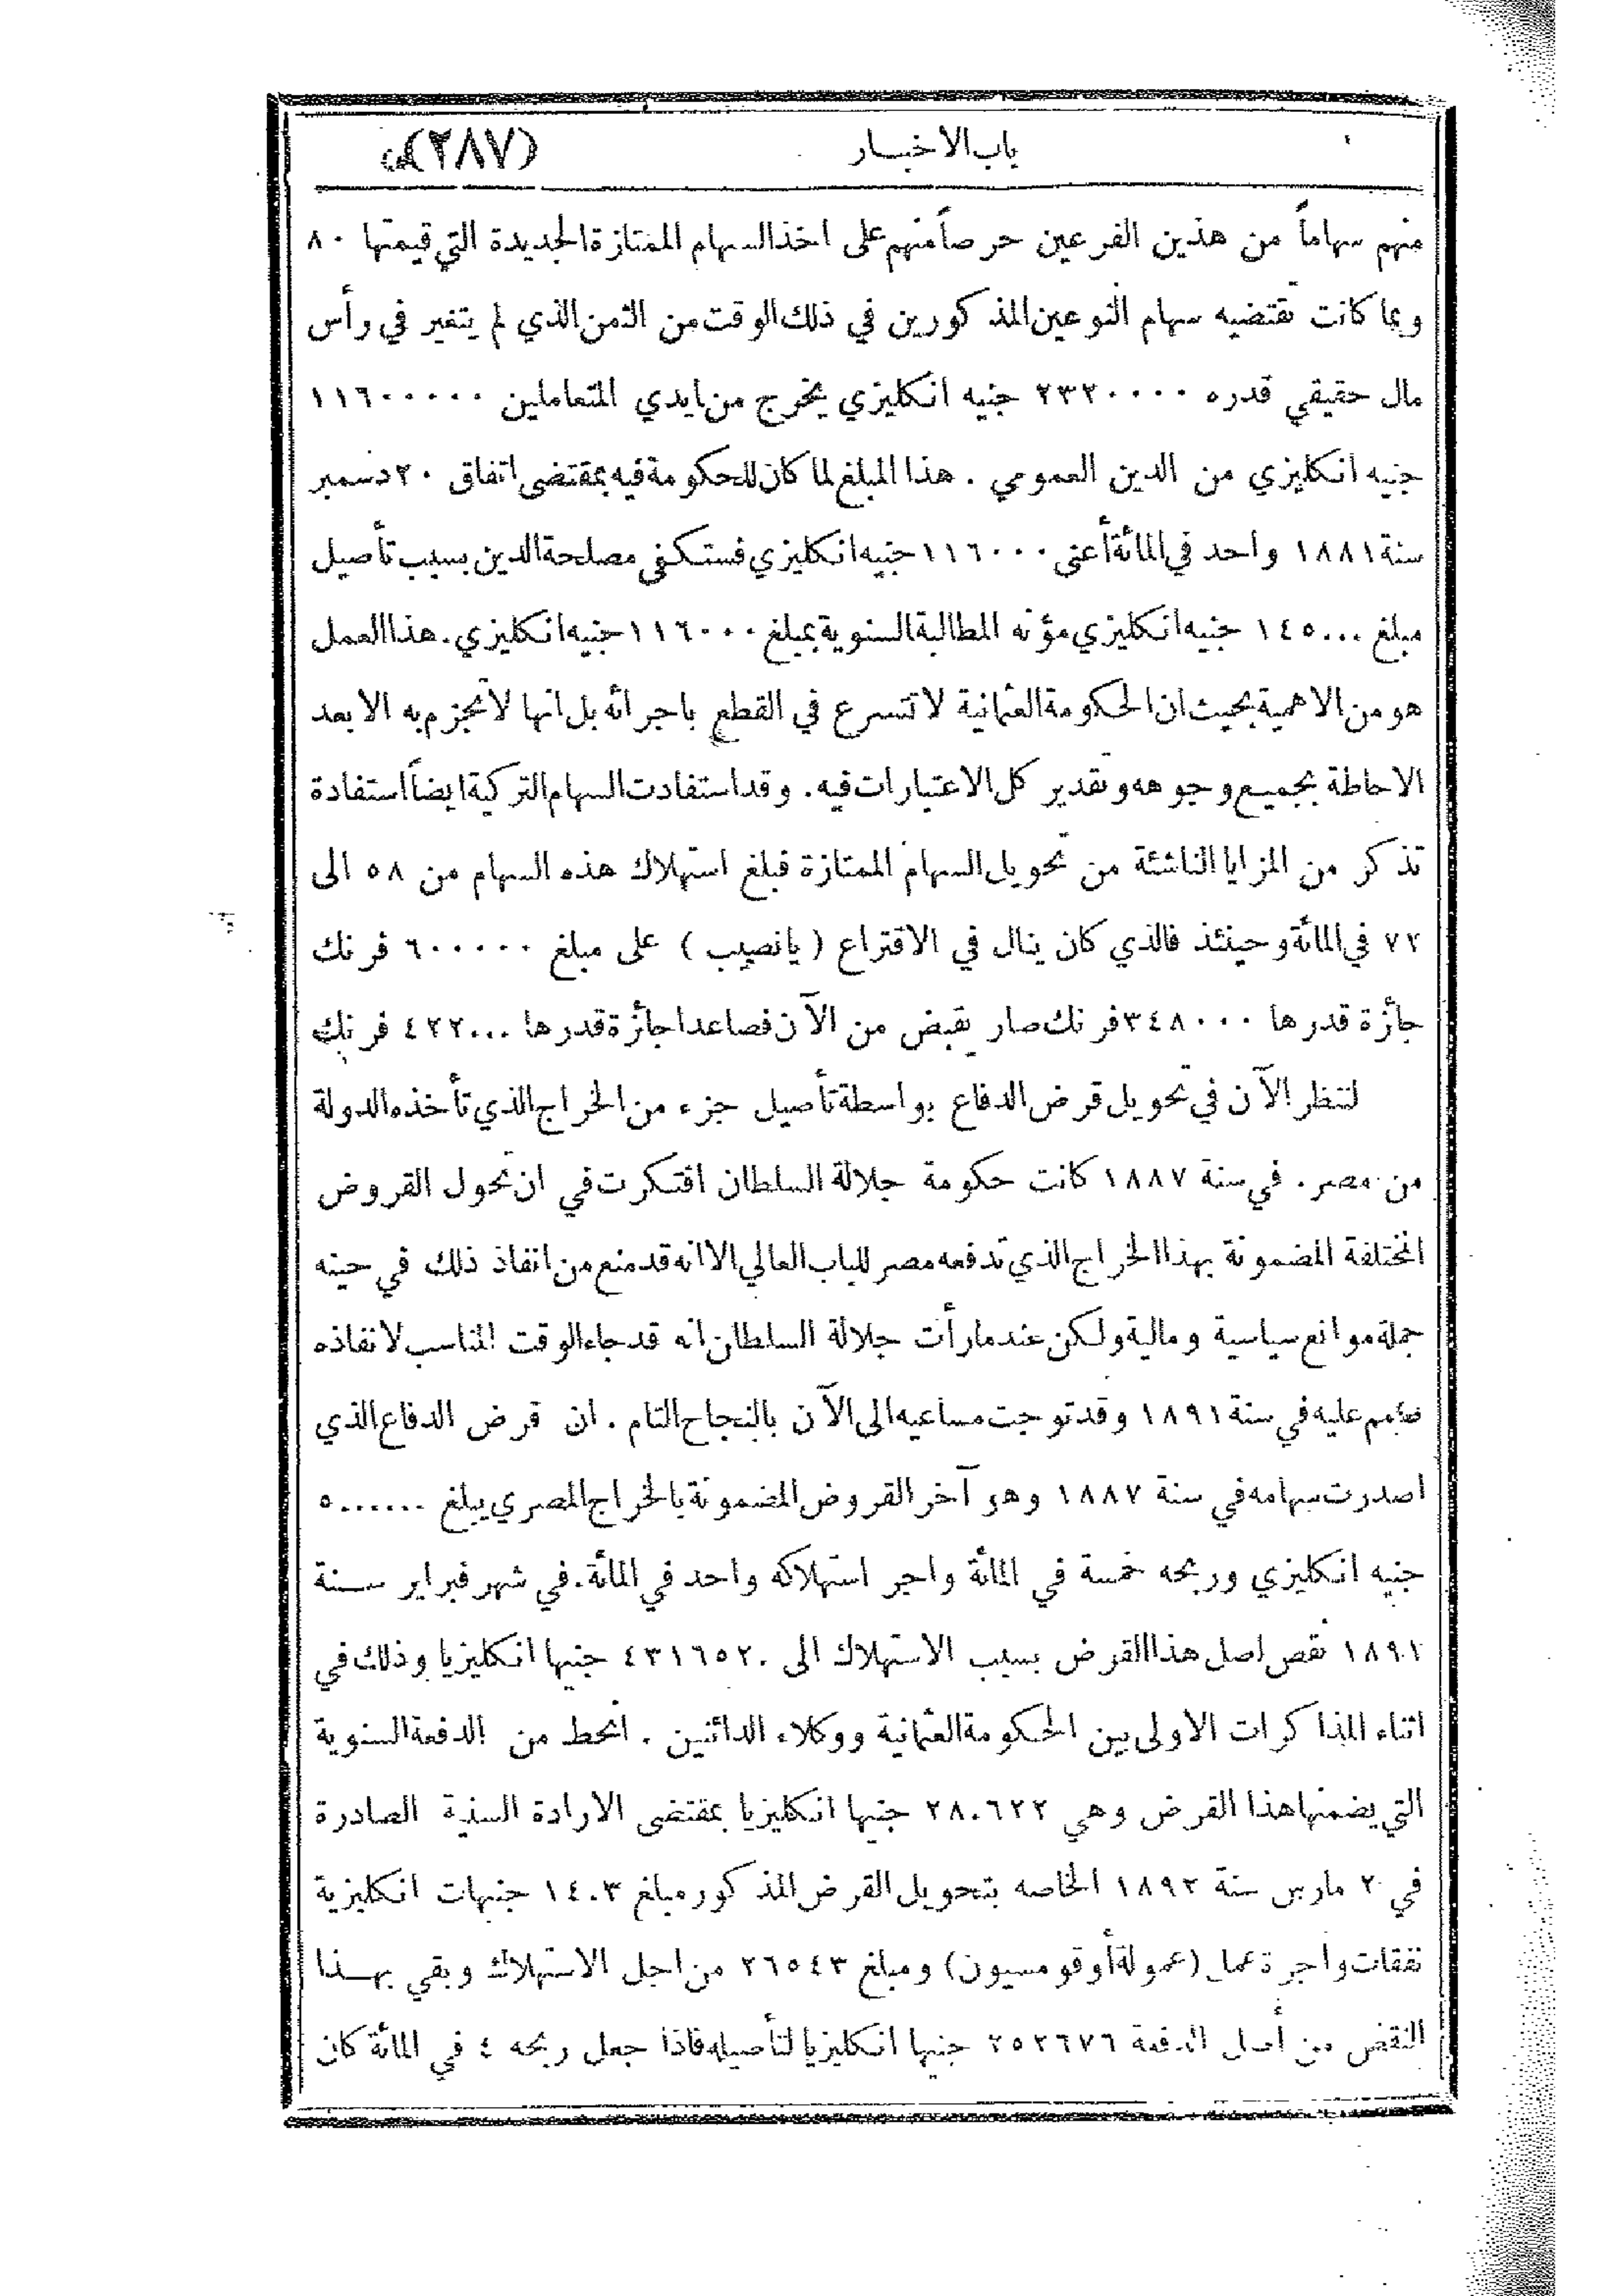 باب الاخبار (٢٨٧)
منهم سهاماً من هذين الفرعين حرصاً منهم على اخذ السهام الممتازة الجديدة التي قيمتها ٨٠
وبما كانت تقتضيه سهام النوعين المذكورين في ذلك الوقت من الثمن الذي لم يتغير في رأس
مال حقيقي قدره ٢٣٢٠٠٠٠ جنيه انكليزي يخرج من ايدي المتعاملين ١١٦٠٠٠٠٠
جنيه انكليزي من الدين العمومي . هذا المبلغ لما كان للحكومة فيه بمقتضى اتفاق ٢٠ دسمبر
سنة ١٨٨١ واحد في المائة أعنى ١١٦٠٠٠ جنيه انكليزي فستكفي مصلحة الدين بسبب تأصيل
مبلغ ١٤٥٠٠٠ جنيه انكليزي مؤنه المطالبة السنوية بمبلغ ١١٦٠٠٠ جنيه انكليزي . هذا العمل
هو من الاهمية بحيث ان الحكومة العثمانية لا تتسرع في القطع باجرائه بل انها لا تجزم به الا بعد
الاحاطة بجميع وجوهه وتقدير كل الاعتبارات فيه . وقد استفادت السهام التركية ايضاً استفادة
تذكر من المزايا الناشئة من تحويل السهام الممتازة فبلغ استهلاك هذه السهام من ٥٨ الى
٧٢ في المائة وحينئذ فالذي كان ينال في الاقتراع ( يانصيب ) على مبلغ ٦٠٠٠٠٠ فرنك
جائزة قدرها ٣٤٨٠٠٠ فرنك صار يقبض من الآن فصاعدا جائزة قدرها ٤٢٢٠٠٠ فرنك
لننظر الآن في تحويل قرض الدفاع بواسطة تأصيل جزء من الخراج الذي تأخذه الدولة
من مصر . في سنة ١٨٨٧ كانت حكومة جلالة السلطان افتكرت في ان تحول القروض
المختلفة المضمونة بهذا الخراج الذي تدفعه مصر للباب العالي الا انه قد منع من انفاذ ذلك في حينه
جملة موانع سياسية ومالية ولكن عند ما رأت جلالة السلطان انه قد جاء الوقت المناسب لانفاذه
صمم عليه في سنة ١٨٩١ وقد توجت مساعيه الى الآن بالنجاح التام . ان قرض الدفاع الذي
اصدرت سهامه في سنة ١٨٨٧ وهو آخر القروض المضمونة بالخراج المصري يبلغ ٥٠٠٠٠٠٠
جنيه انكليزي وربحه خمسة في المائة واجر استهلاكه واحد في المائة . في شهر فبراير سنة
١٨٩١ نقص اصل هذا القرض بسبب الاستهلاك الى ٤٣١٦٥٢٠ جنيها انكليزيا وذلك في
اثناء المذاكرات الاولى بين الحكومة العثمانية ووكلاء الدائنين . انحط من الدفعة السنوية
التي يضمنها هذا القرض وهي ٢٨٠٦٢٢ جنيها انكليزيا بمقتضى الارادة السنية الصادرة
في ٢ مارس سنة ١٨٩٢ الخاصه بتحويل القرض المذكور مبلغ ١٤٠٣ جنيهات انكليزية
نفقات واجرة عمل (عمولة أو قومسيون) ومبلغ ٢٦٥٤٣ من اجل الاستهلاك وبقي بهذا
النقض من أصل الدفعة ٢٥٢٦٧٦ جنيها انكليزيا لتأصيله فاذا جعل ربحه ٤ في المائة كان